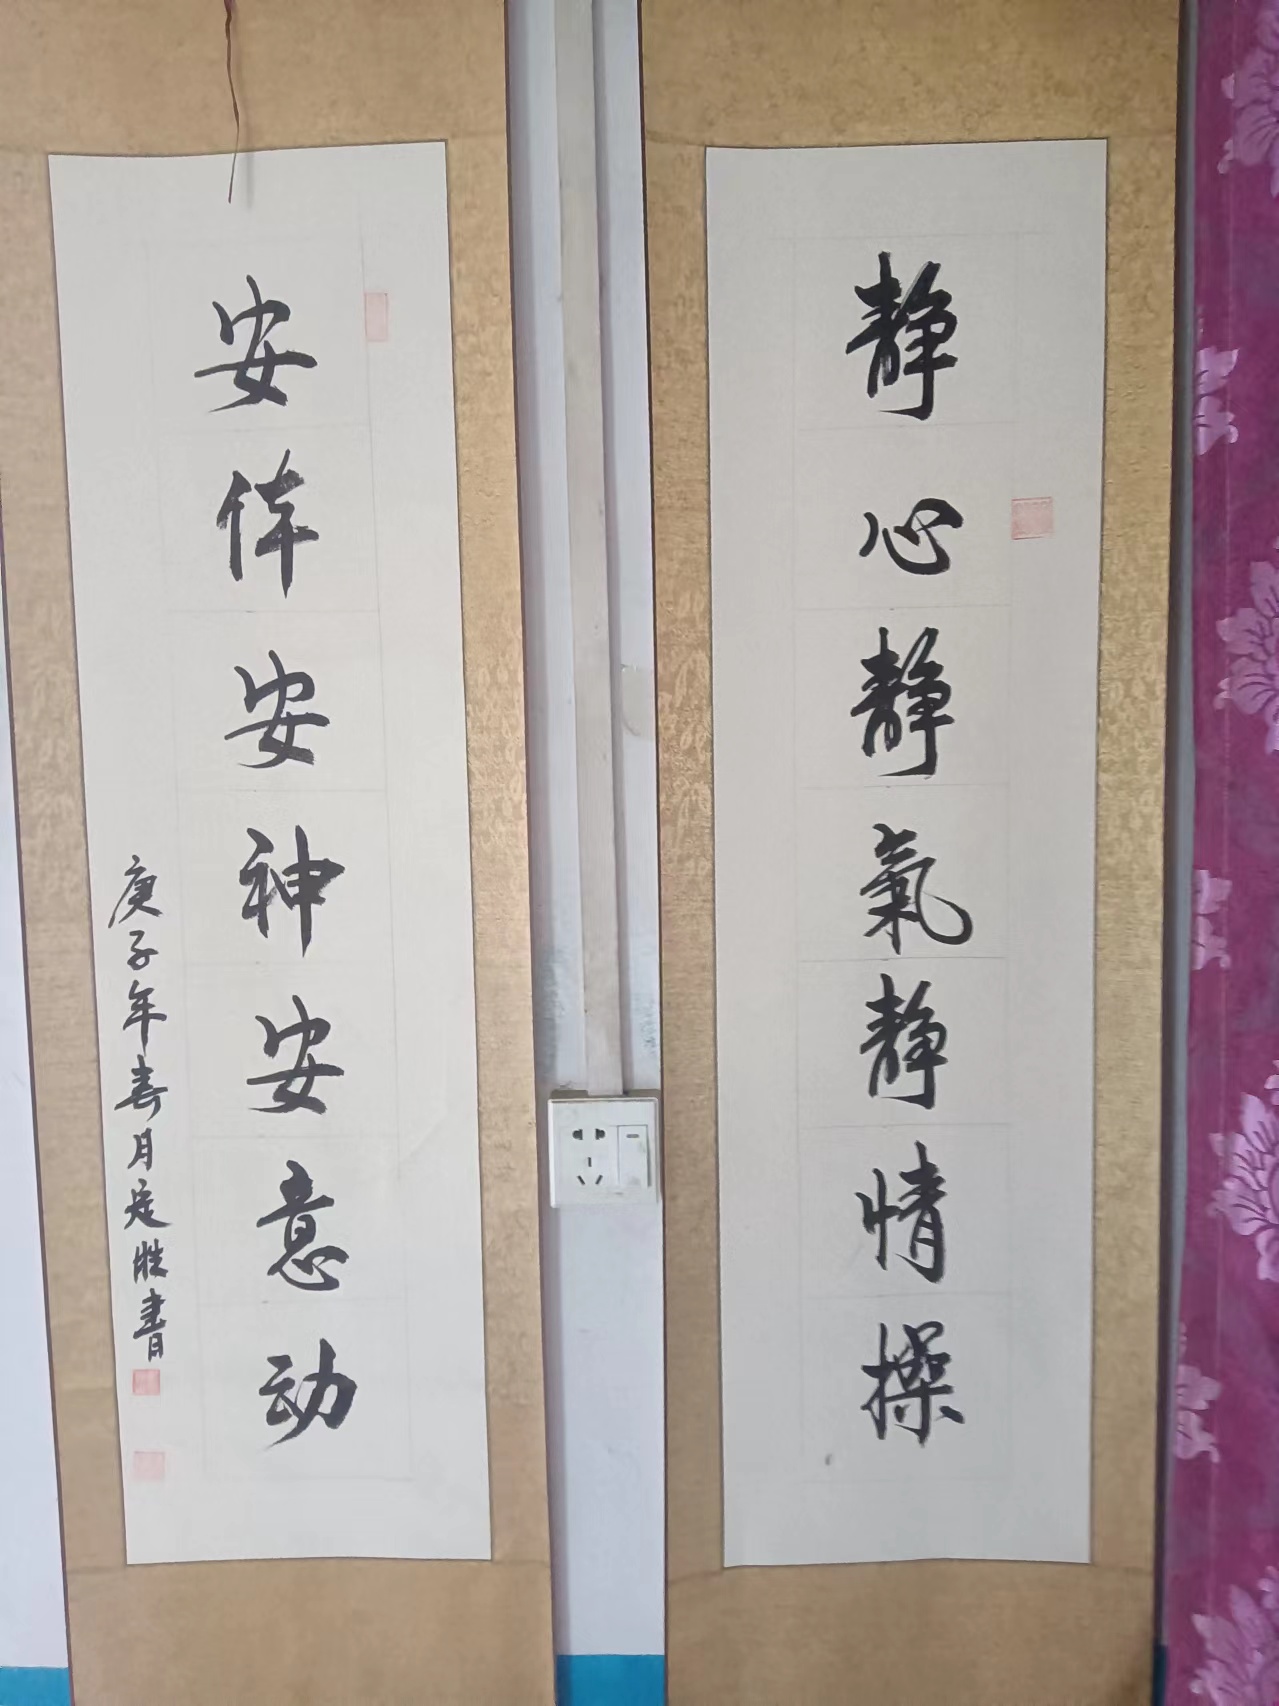 静心静氣静情操
安体安神安意动
庚子年春月定胜書